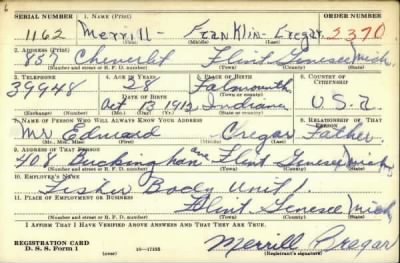 SERIAL NUMBER 1. NAME (Print) ORDER NUMBER
1162 Merrill - Franklin - Cregar 2370
(First) (Middle) (Last)
2. ADDRESS (Print)
857 Cheverlet Flint Genesee Mich
(Number and street or R. F. D. number) (Town) (County) (State)
3. TELEPHONE 4. AGE IN YEARS 5. PLACE OF BIRTH 6. COUNTRY OF CITIZENSHIP
39948 28 Falmouth
DATE OF BIRTH (Town or county)
Oct 13 1912 Indiana U.S.A.
(Exchange) (Number) (Mo.) (Day) (Yr.) (State or country)
7. NAME OF PERSON WHO WILL ALWAYS KNOW YOUR ADDRESS 8. RELATIONSHIP OF THAT PERSON
Mr Edward Cregar Father
(Mr., Mrs., Miss) (First) (Middle) (Last)
9. ADDRESS OF THAT PERSON
408 Buckingham ave Flint Genesee Mich
(Number and street or R. F. D. number) (Town) (County) (State)
10. EMPLOYER'S NAME
Fisher Body Unit 1.
11. PLACE OF EMPLOYMENT OR BUSINESS
Flint Genesee Mich
(Number and street or R. F. D. number) (Town) (County) (State)
I AFFIRM THAT I HAVE VERIFIED ABOVE ANSWERS AND THAT THEY ARE TRUE.
REGISTRATION CARD
D. S. S. Form 1 (over) 16—17255 Merrill Cregar
(Registrant's signature)